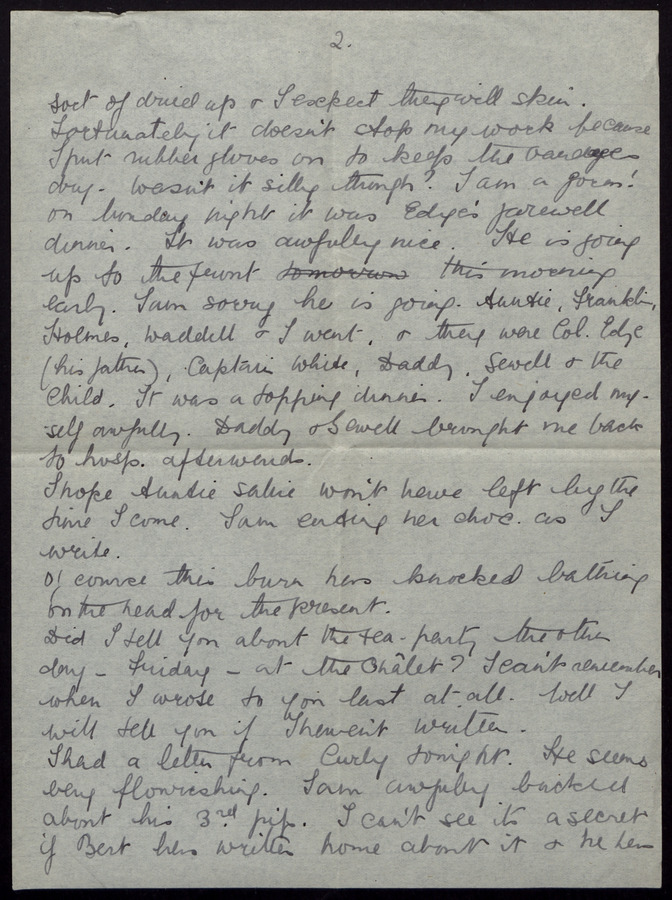 2.
sort of dried up & I expect they will skin.
Fortunately it doesn't stop my work because
I put rubber gloves on to keep the bandages
dry. Wasn't it silly though? I am a goose!
on Sunday night it was Edge's farewell
dinner. It was awfully nice. He is going
up to the front tomorrow this morning
early. I am sorry he is going. Auntie, Franklin,
Holmes, Waddell & I went, & they were Col. Edge
(his father), Captain White, Daddy, Sewell & the
Child. It was a topping dinner. I enjoyed my-
self awfully. Daddy & Sewell brought me back
to hosp. afterwards.
I hope Auntie Salie won't have left by the
time I come. I am eating her choc. as I
write.
Of course this burn has knocked bathing
on the head for the present.
Did I tell you about the tea-party the other
day - Friday - at the Châlet? I can't remember
when I wrote to you last at all. Well I
will tell you if I haven't written.
I had a letter from Curly tonight. He seems
very flourishing. I am awfully bucked
about his 3rd pip. I can't see its a secret
if Bert has written home about it & he has